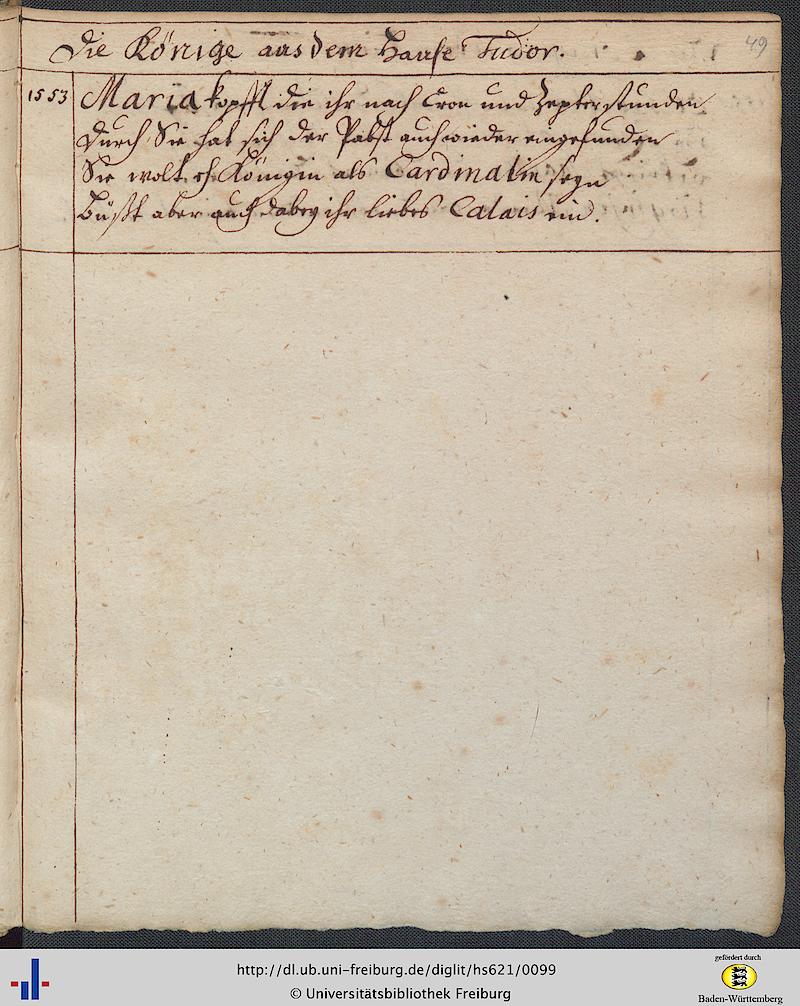 Die Könige aus dem Hause Tudor.
49
1553
Maria köpfft die ihr nach Cron und Zepter stunden
Durch Sie hat sich der Pabst auch wieder eingefunden
Sie wolt eh Königin als Cardinalin seyn
Büßt aber auch dabey ihr liebes Calais ein.
http://dl.ub.uni-freiburg.de/diglit/hs621/0099
© Universitätsbibliothek Freiburg
gefördert durch
Baden-Württemberg